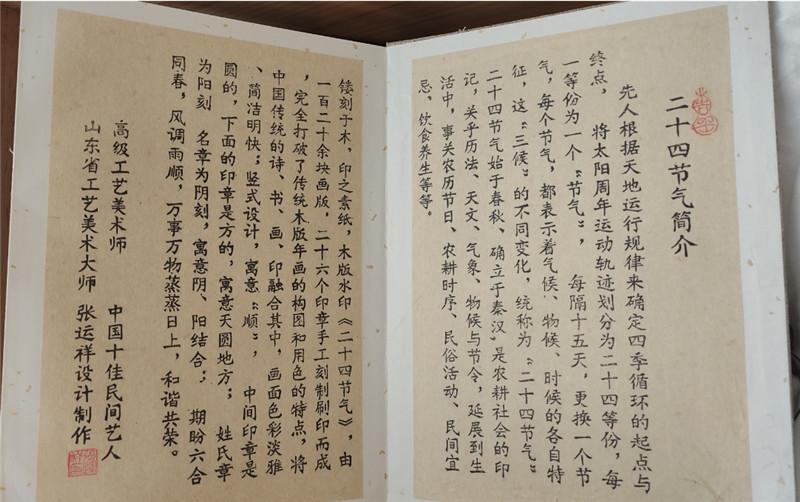 二十四节气简介
先人根据天地运行规律来确定四季循环的起点与
终点，将太阳周年运动轨迹划分为二十四等份，每
一等份为一个“节气”，每隔十五天，更换一个节
气，每个节气，都表示着气候、物候、时候的各自特
征，这“三候”的不同变化，统称为“二十四节气”
二十四节气始于春秋、确立于秦汉，是农耕社会的印
记，关乎历法、天文、气象、物候与节令，延展到生
活中，事关农历节日、农耕时序、民俗活动、民间宜
忌、饮食养生等等。
镂刻于木，印之素纸，木版水印《二十四节气》，由
一百二十余块画版，二十六个印章手工刻制刷印而成
，完全打破了传统木版年画的构图和用色的特点，将
中国传统的诗、书、画、印融合其中，画面色彩淡雅
、简洁明快；竖式设计，寓意“顺”，中间印章是
圆的，下面的印章是方的，寓意天圆地方；姓氏章
为阳刻 名章为阴刻，寓意阴、阳结合；期盼六合
同春，风调雨顺，万事万物蒸蒸日上，和谐共荣。
高级工艺美术师 中国十佳民间艺人
山东省工艺美术大师 张运祥设计制作